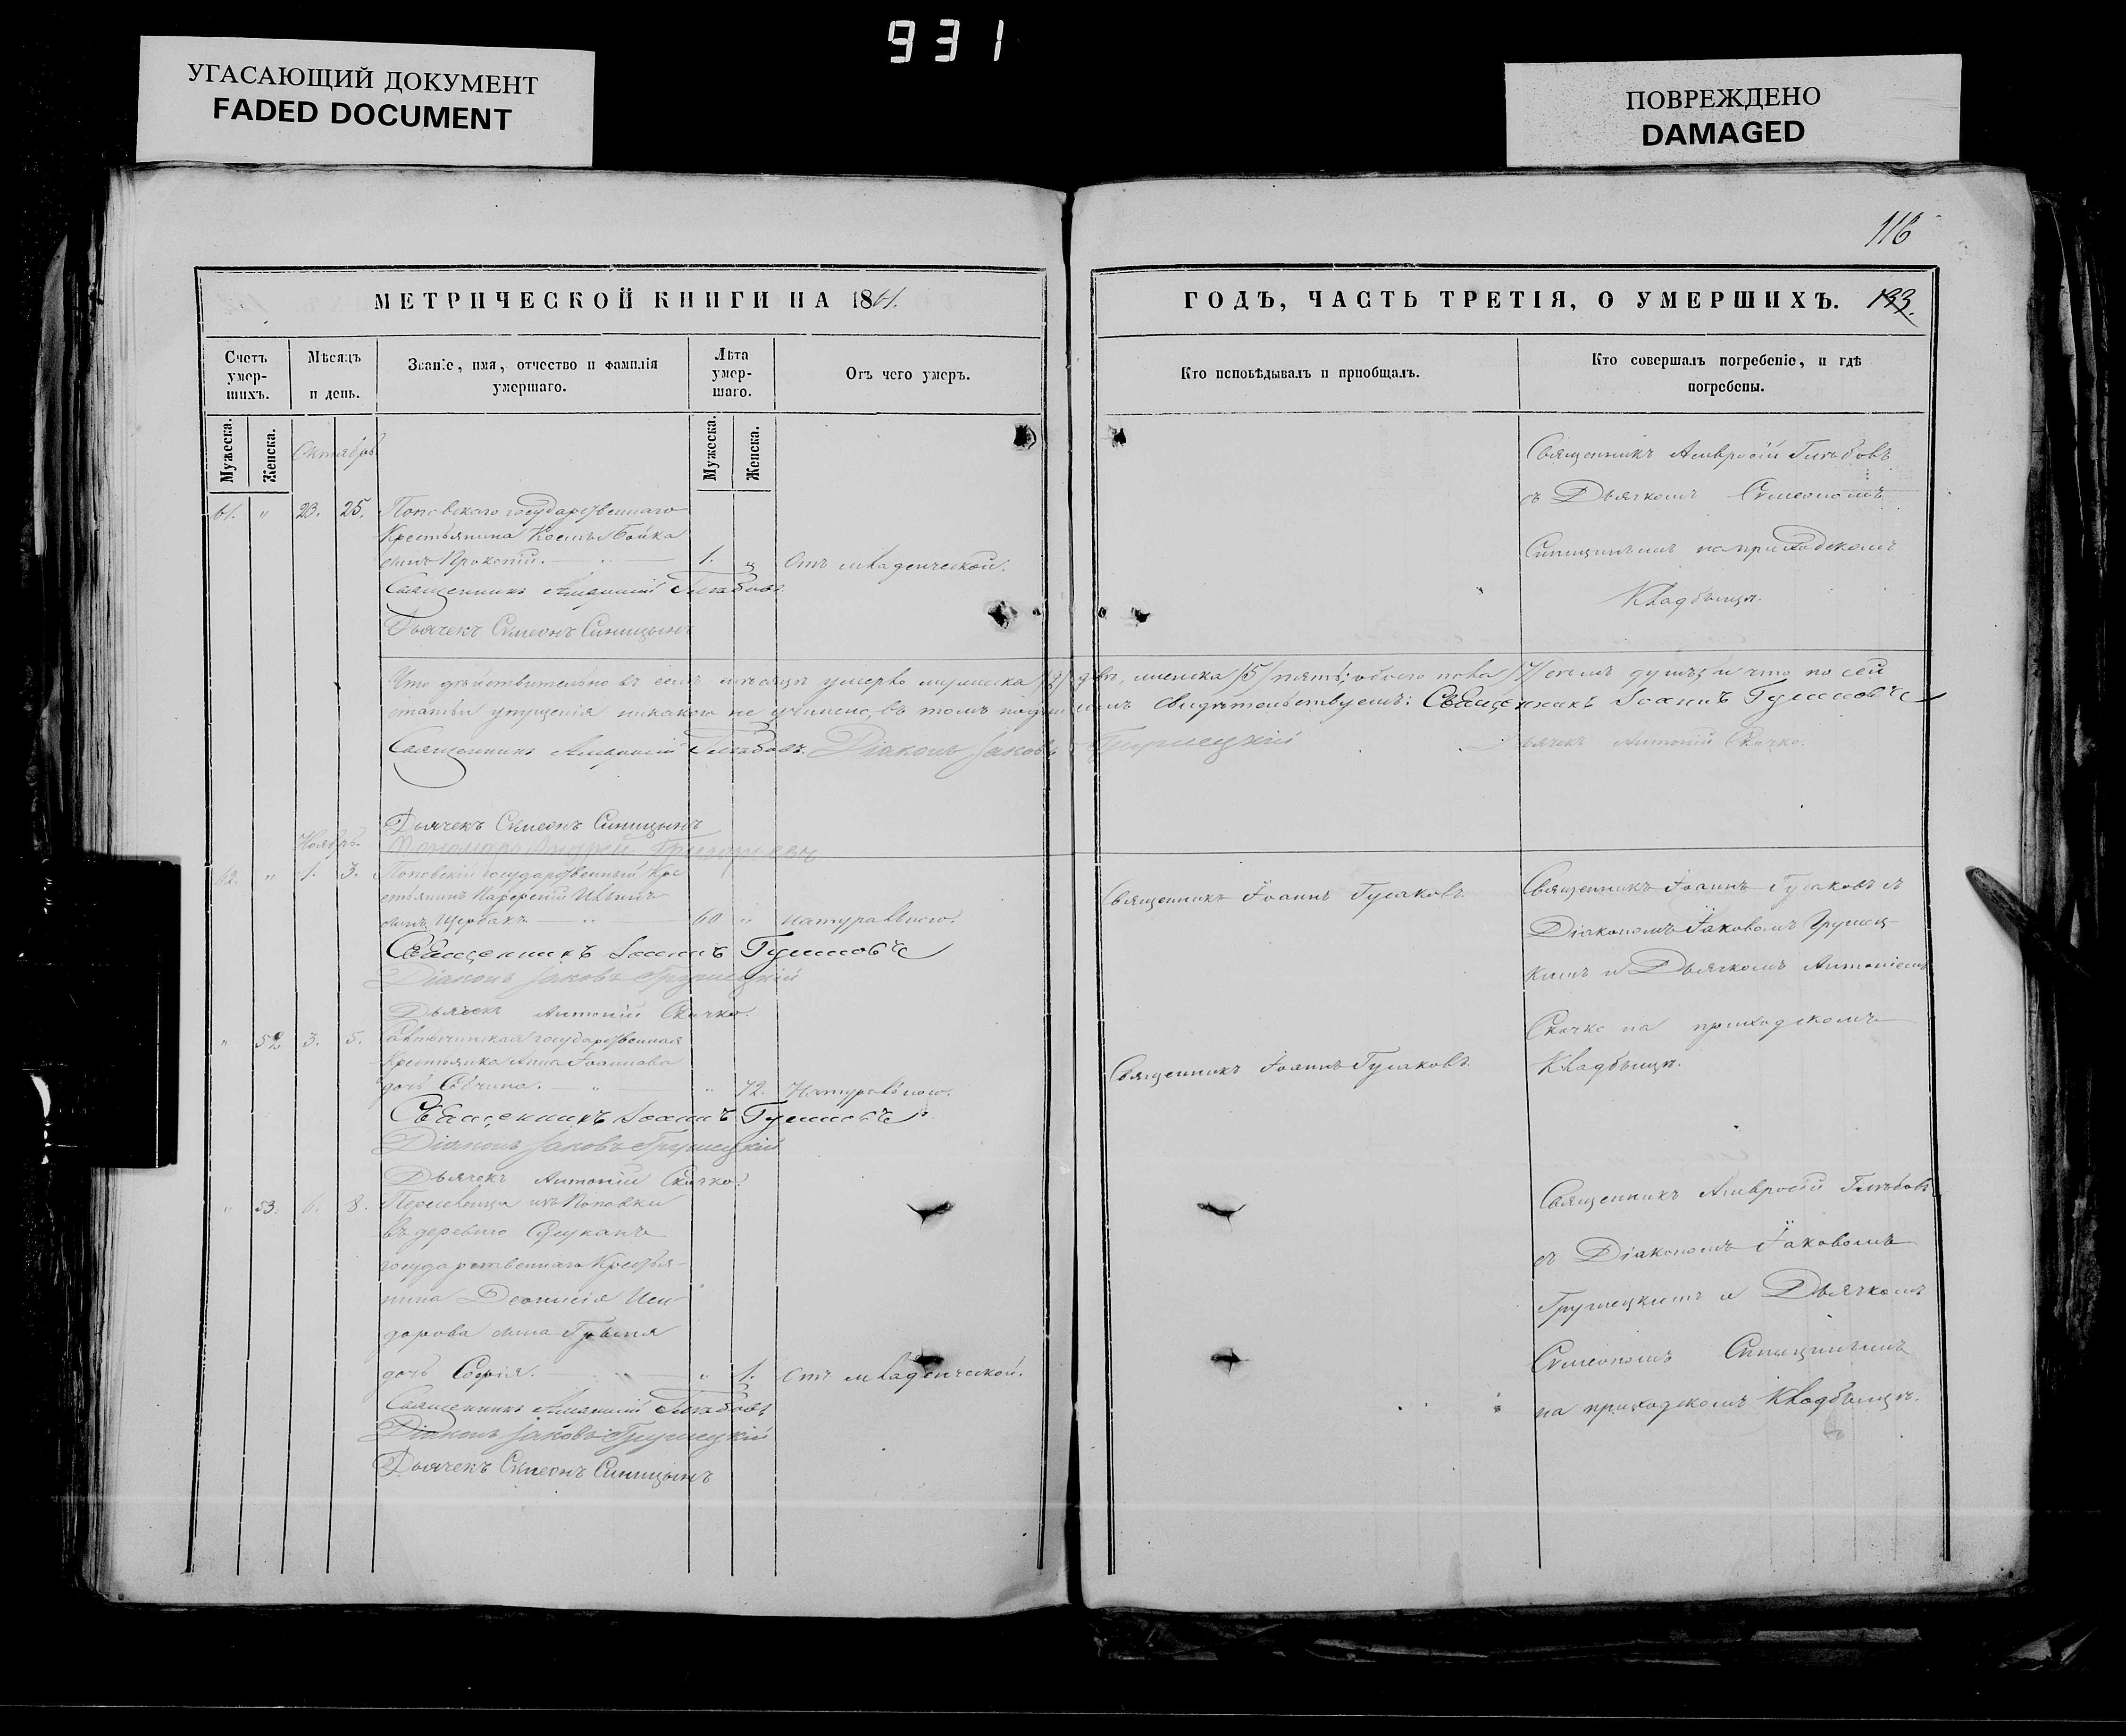 931
УГАСАЮЩИЙ ДОКУМЕНТ
FADED DOCUMENT
ПОВРЕЖДЕНО
DAMAGED
116
МЕТРИЧЕСКОЙ КНИГИ НА 1861.
ГОДЪ, ЧАСТЬ ТРЕТІЯ, О УМЕРШИХЪ. 133.
Счетъ умер-шихъ.
Мѣсяцъ и день.
Званіе, имя, отчество и фамилія
умершаго.
Лѣта умер-шаго.
Отъ чего умеръ.
Кто исповѣдывалъ и пріобщалъ.
Кто совершалъ погребеніе, и гдѣ
погребены.
Мужеска.
Женска.
Октябрь
Мужеска.
Женска.
61. " 23. 25. Поповскаго государственнаго
Крестьянина Бойка
сынъ Прокопій. 1. " Отъ младенческой.
Священникъ Амвросій Глѣбовъ
Дьячекъ Сѵмеонъ Синицынъ
Священникъ Амвросій Глѣбовъ
съ Дьячкомъ Сѵмеономъ
Синицинымъ на приходскомъ
Кладбищѣ.
Что дѣйствительно въ семъ мѣсяцѣ умерло мужеска /2/ два, женска /5/ пять; обоего пола /7/ семь душъ; и что по сей
статьи упущенія никакого не учинено, въ томъ подписомъ свидѣтельствуемъ: Священникъ Іоаннъ Гусаковъ
Священникъ Амвросій Глѣбовъ. Діаконъ Іаковъ Грушецкій Дьячекъ Антоній Скачко.
Дьячекъ Сѵмеонъ Синицынъ
Пономарь Андрей Григориевъ
Ноябрь
62. " 1. 3. Поповскій государственный Кре
стьянинъ
сынъ Щербакъ 60 " натуральною.
Священникъ Іоаннъ Гусаковъ
Діаконъ Іаковъ Грушецкій
Дьячекъ Антоній Скачко.
Священникъ Іоаннъ Гусаковъ.
Священникъ Іоаннъ Гусаковъ съ
Діакономъ Іаковомъ Грушец-
кимъ и Дьячкомъ Антоніемъ
Скачко на приходскомъ
Кладбищѣ.
" 52. 3. 5. государственная
Крестьянка Анна Іоаннова
дочь " 72. Натуральною.
Священникъ Іоаннъ Гусаковъ
Діаконъ Іаковъ Грушецкій
Дьячекъ Антоній Скачко.
Священникъ Іоаннъ Гусаковъ.
" 53. 6. 8. изъ Поповки
въ деревню
государственнаго Крестья-
нина Діонисія Иси-
дорова сына
дочь Софія. " 1. Отъ младенческой.
Священникъ Амвросій Глѣбовъ
Діаконъ Іаковъ Грушецкій
Дьячекъ Сѵмеонъ Синицынъ
Священникъ Амвросій Глѣбовъ
съ Діакономъ Іаковомъ
Грушецкимъ и Дьячкомъ
Сѵмеономъ Синицинымъ
на приходскомъ Кладбищѣ.